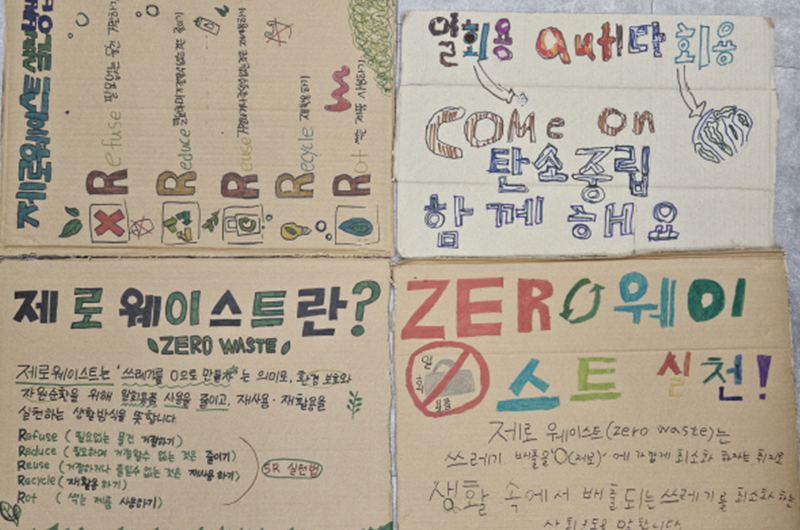 제로웨이스트
Refuse
Reduce
Reuse
Recycle
Rot
일회용 out! 다회용
COMe on
탄소중립
함께 해요
제로웨이스트란?
ZERO WASTE
제로웨이스트는 '쓰레기를 0으로 만들자'는 의미로, 환경 보호와
자원순환을 위해 일회용품 사용을 줄이고, 재사용·재활용을
실천하는 생활방식을 뜻합니다.
Refuse (필요없는 물건 거절하기)
Reduce (필요하며 거절할수 없는 것은 줄이기)
Reuse (거절하거나 줄일수 없는 것은 재사용하기)
Recycle (재활용하기)
Rot (썩는 제품 사용하기)
5R 실천법
ZERO웨이
스트 실천!
일
회
용품
제로 웨이스트(zero waste)는
쓰레기 배출을 '0(제로)'에 가깝게 최소화 하자는 취지로
생활 속에서 배출되는 쓰레기를 최소화하는